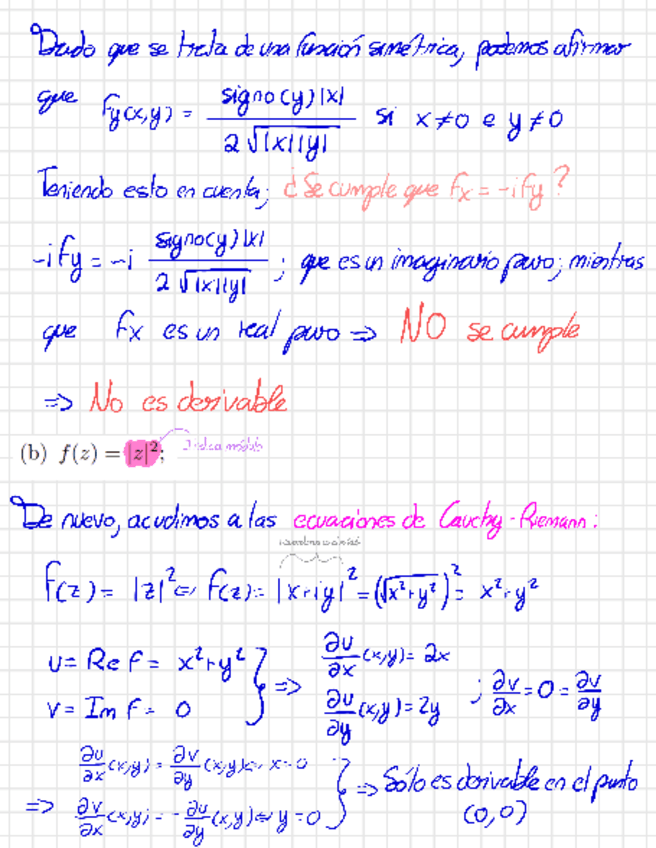 Dado que se trata de una función simétrica, podemos afirmar
que fy(x,y) = signo(y)|x| / 2√|x||y| si x≠0 e y≠0
Teniendo esto en cuenta; ¿Se cumple que fx = -ify?
-ify = -i signo(y)|x| / 2√|x||y| ; que es un imaginario puro; mientras
que fx es un real puro => NO se cumple
=> No es derivable
(b) f(z) = |z|²; Indica módulo
De nuevo, acudimos a las ecuaciones de Cauchy-Riemann:
f(z) = |z|² <=> f(z) = |x+iy|² = (√x²+y²)² = x²+y²
u = Re f = x²+y²
v = Im f = 0
} => ∂u/∂x (x,y) = 2x
∂u/∂y (x,y) = 2y
; ∂v/∂x = 0 = ∂v/∂y
=> ∂u/∂x (x,y) = ∂v/∂y (x,y) <=> x=0
∂v/∂x (x,y) = -∂u/∂y (x,y) <=> y=0
} => Sólo es derivable en el punto
(0,0)